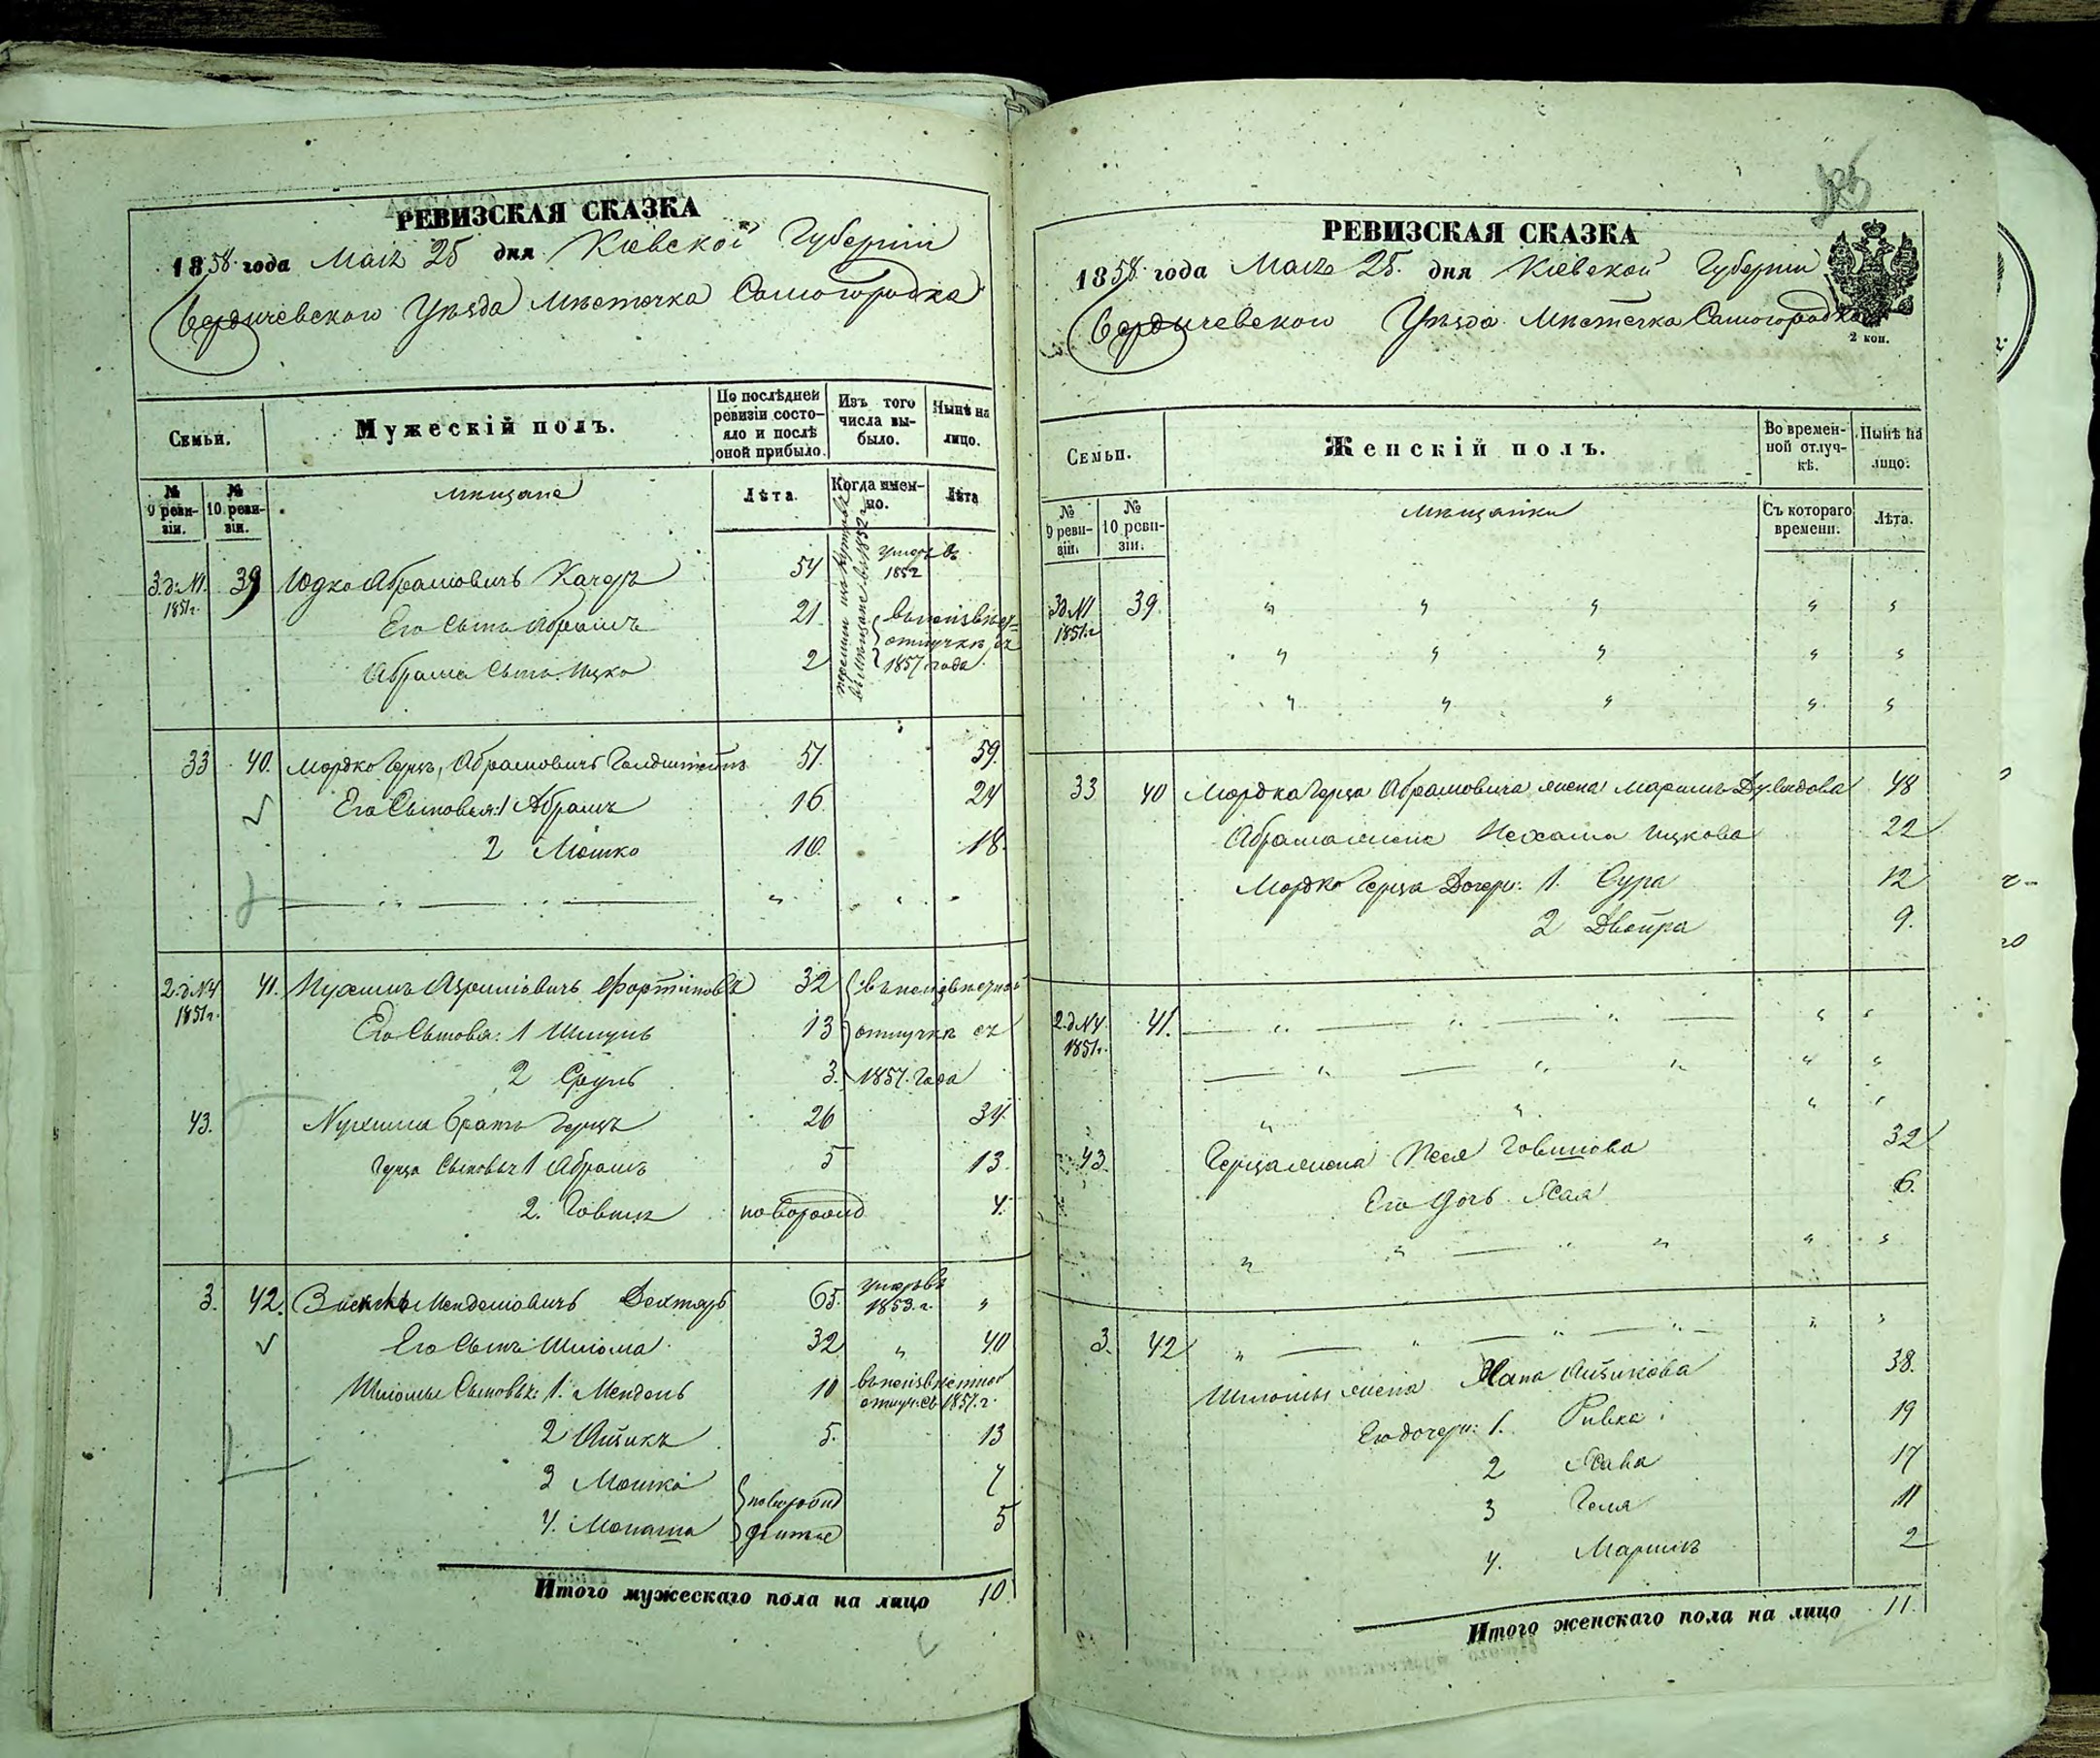 РЕВИЗСКАЯ СКАЗКА
1858 года Мая 25 дня Кіевской Губерніи
Бердичевскаго Уѣзда Мѣстечка Самогородка
Семьи.
Мужескій полъ.
По послѣдней ревизіи состояло и послѣ оной прибыло.
Изъ того числа выбыло.
Нынѣ на лицо.
№ 9 ревизіи.
№ 10 ревизіи.
мѣщане
Лѣта.
Когда именно.
Лѣта
3.д.№1. 1851г. 39 Юдко Абрамовичъ Качеръ 54 умеръ въ 1852
Его Сынъ Абрамъ 21
Абрама Сынъ Ицко 2 отлучкѣ съ 1857 года
33 40. Мордко Герцъ Абрамовичъ Голдштейнъ 51. 59.
Его Сыновья: 1 Абрамъ 16 24
2 Мошко 10. 18.
2.д.№4 1851г. 41. Нухимъ Абрамовичъ 32
Его Сыновья: 1 Шмуль 13 отлучкѣ съ
2 Сруль 3. 1857. года
43. Нухима братъ Герцъ 26 34.
Герца Сыновья 1 Абрамъ 5 13.
2. Говшія 4.
3. 42. Мендельовичъ Дехтяръ 65. умеръ въ 1853.г. „
Его Сынъ Шлома 32 „ 40
Шломы Сыновья: 1. Мендель 10 1857.г.
2 Айзикъ 5. 13
3 Мошко 7
4. Монаша 5
Итого мужескаго пола на лицо 10.
РЕВИЗСКАЯ СКАЗКА
1858 года Мая 25. дня Кіевской Губерніи
Бердичевскаго Уѣзда Мѣстечка Самогородка
2 коп.
Семьи.
Женскій полъ.
Во временной отлучкѣ.
Нынѣ на лицо.
№ 9 ревизіи.
№ 10 ревизіи.
мѣщанки
Съ котораго времени.
Лѣта.
3д№1 1851.г 39. „ „ „ „ „
„ „ „ „ „
„ „ „ „ „
33 40 Мордка Герца Абрамовича жена Маріимъ Дувидова 48
Абрама жена Нехама Ицкова 22
Мордко Герца Дочери: 1. Сура 12
2 Двойра 9.
2.д№4. 1851г. 41.
43. Герца жена Песя Говшіова 32
Его дочь Хая 6.
3. 42
Шломы жена Хана Айзикова 38.
Его дочери: 1. Ривка 19
2 17
3 Геня 11
4. Маріимъ 2
Итого женскаго пола на лицо 11.